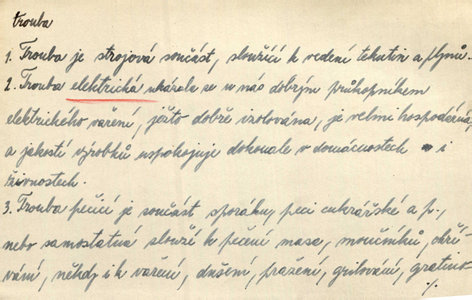 trouba
1. Trouba je strojová součást, sloužící k vedení tekutin a plynů.
2. Trouba elektrická ukázala se u nás dobrým průkopníkem
elektrického vaření, ježto dobře izolována, je velmi hospodárná
a jakostí výrobků uspokojuje dokonale v domácnostech i
živnostech.
3. Trouba pečicí je součást sporáku, peci cukrářské a p.,
nebo samostatná slouží k pečení masa, moučníků, ohří-
vání, někdy i k vaření, dušení, pražení, grilování, gratino-